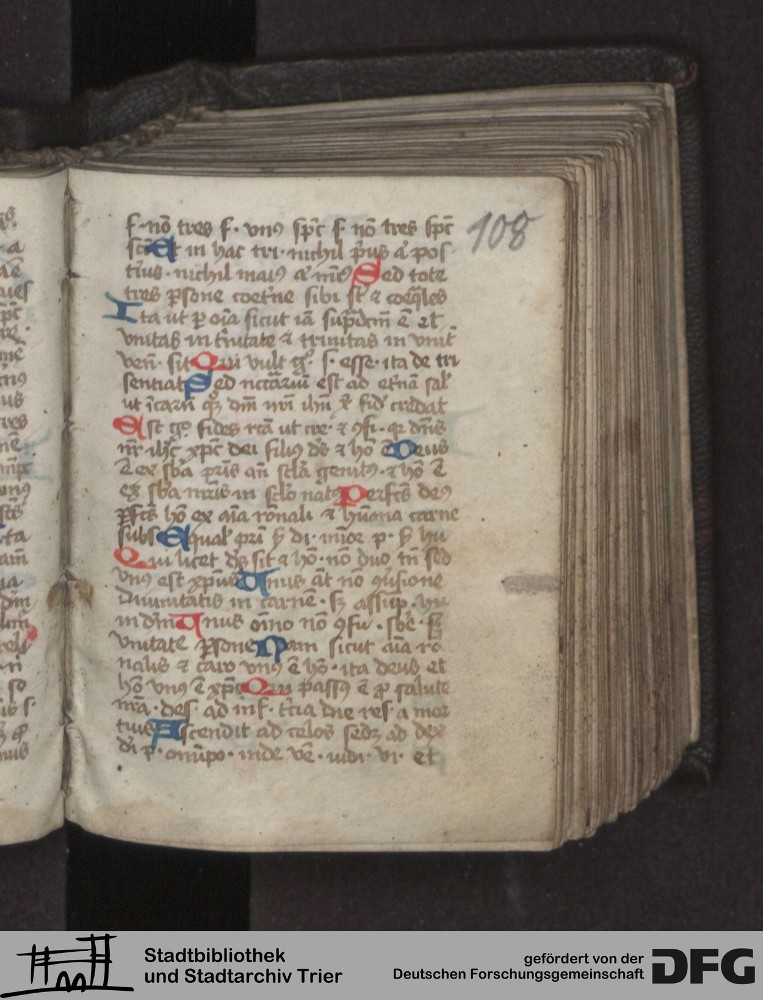 f · nō tres f · vnꝰ sp̄c s̄ nō tres sp̄c
108
sc̄i Et in hac tri · nichil p̄us aꝉ pos
tius · nichil maiꝰ aꝉ mīꝰ Sed tote
tres ꝑsone coet̄ne sibi st̄ ⁊ coeq̄les
Ita ut ꝑ oīa sicut iā sup̄dc̄m ē et
vnitas in t̄nitate ⁊ trinitas in vnit̄
ven̄ · sit Qui vult gͦ · s · esse · ita de tri
sentiat Sed nccāriū est ad et̄nā sal̄
ut īcarn̄ qꝫ dn̄i nr̄i ihū x̄ fid̓ credat
Est gͦ fides rc̄a ut cre · ⁊ ꝯfi · qꝛ dn̄s
nr̄ ih̄c xp̄c dei filiꝰ ds̄ ⁊ hō ē Deus
ē ex sb̄a pr̄is an̄ scl̄a genitꝰ · ⁊ hō ē
ex sb̄a mr̄is in scl̄o natꝰ Perfc̄s deꝰ
ꝑfc̄s hō ex aīa rōnali ⁊ hūana carne
subs Equal̓ pr̄i ẜ di · mīor p · ẜ hu
Qui licet ds̄ sit ⁊ hō · nō duo tn̄ sed
vnꝰ est xp̄us Unus aūt nō ꝯuersione
diuinitatis in carnē · sꝫ assūp · hu
in dm̄ Unus oīno nō ꝯfu · sb̄e · sꝫ
vnitate ꝑsone Nam sicut aīa ro
nalis ⁊ caro vnꝰ ē hō · ita deus et
hō vnꝰ ē xp̄c Qui passꝰ ē ꝓ salute
nr̄a · des · ad inf · t̓cia die res · a mor
tuis Ascendit ad celos sedꝫ ad dex
di p · omīpo · inde vē · iudi · vi · et
Stadtbibliothek
und Stadtarchiv Trier
gefördert von der
Deutschen Forschungsgemeinschaft
DFG